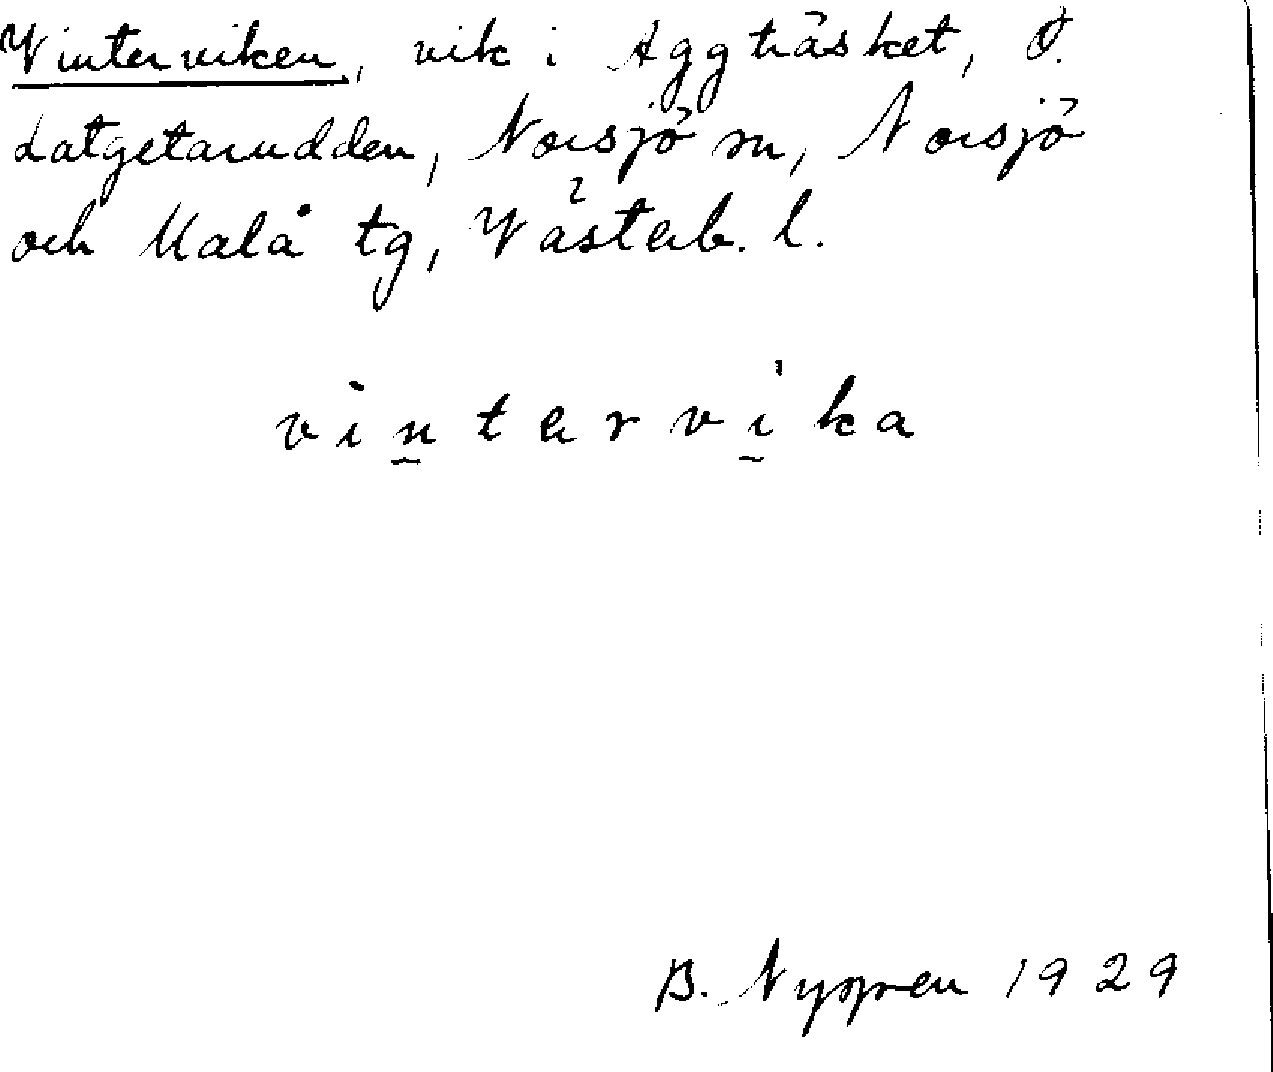 Vinterviken, vik i Aggträsket, Ö.
Latgetarudden, Norsjö sn, Norsjö
och Malå tg, Västerb. l.
vi̱ntervi̱ka
B. Nygren 1929